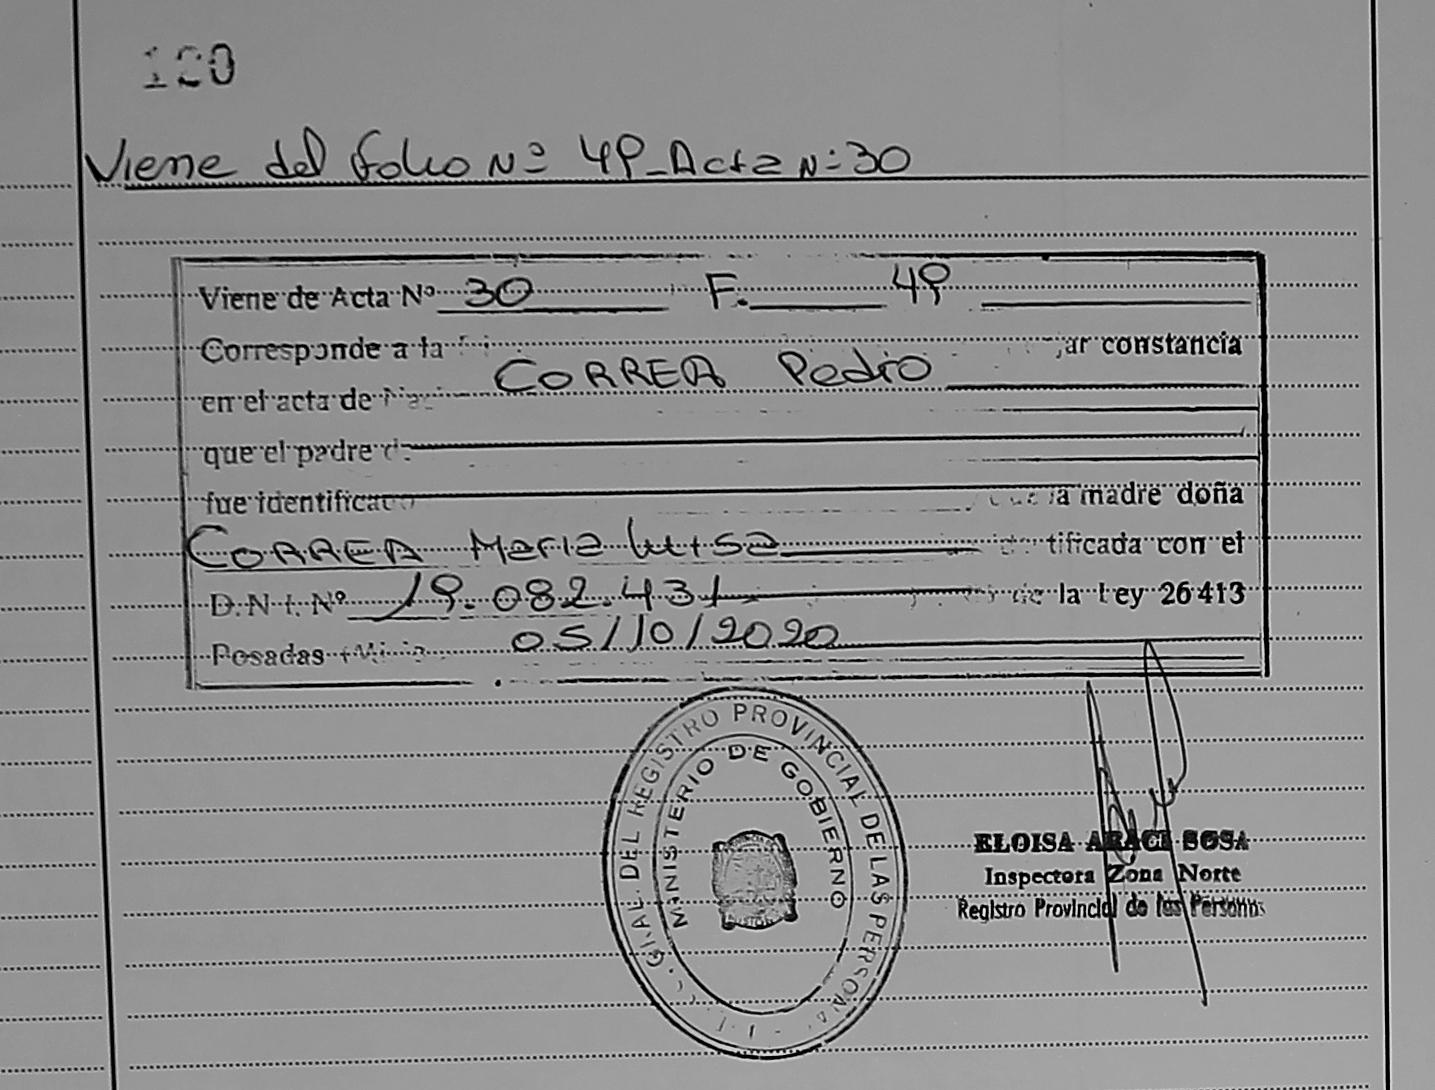 120
Viene del folio Nº 49 - Acta Nº 30
Viene de Acta Nº 30 F. 49
Corresponde a la constancia
en el acta de CORREA Pedro
que el padre
fue identificado la madre doña
CORREA Maria Luisa identificada con el
D.N.I. Nº 19.082.431 de la Ley 26413
Posadas 05/10/2020
GRAL. DEL REGISTRO PROVINCIAL DE LAS PERSONAS
MINISTERIO DE GOBIERNO
ELOISA ARACI SOSA
Inspectora Zona Norte
Registro Provincial de las Personas